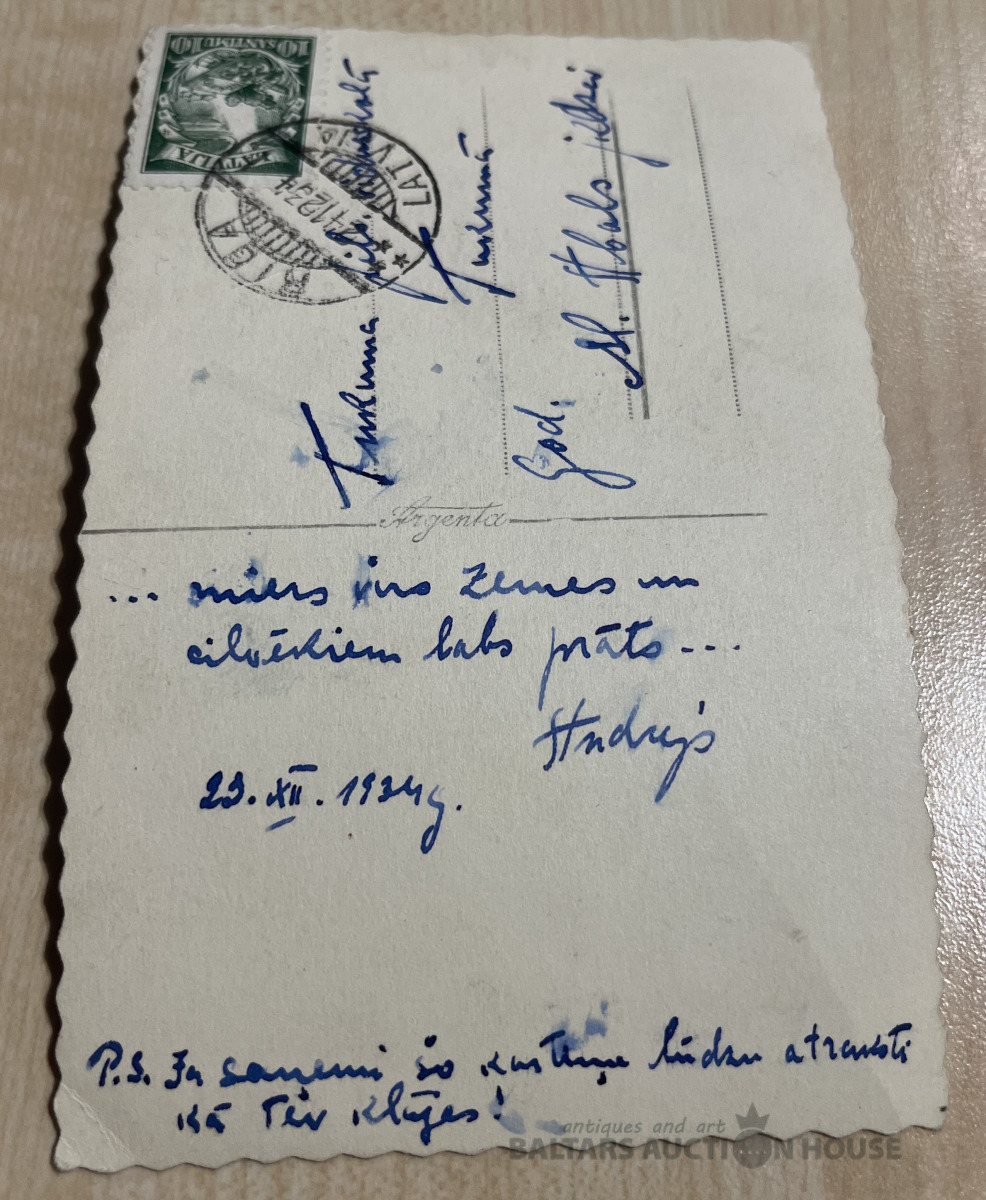 10 SANTIMU 10
LATVIJA
RIGA
LATVIJA
Tukuma
Tukumā
God.
Argenta
... miers virs zemes un
cilvēkiem labs prāts...
Andrejs
23. XII. 1934 g.
P.S. Ja saņemi šo kartiņu lūdzu atraksti
kā Tev klājas!
antiques and art
BALTARS AUCTION HOUSE